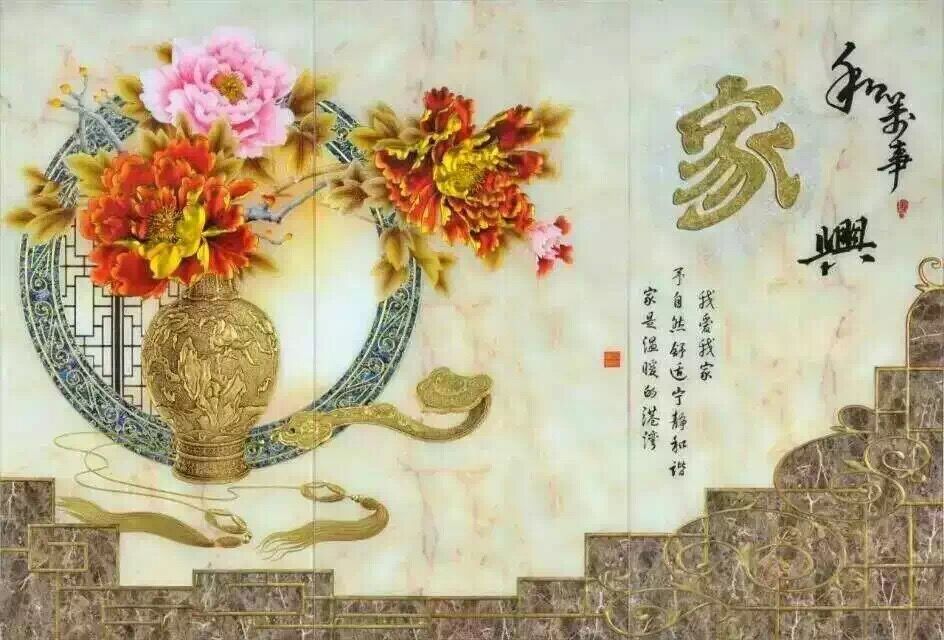 家和萬事興
我爱我家
予自然舒适宁静和谐
家是温暖的港湾